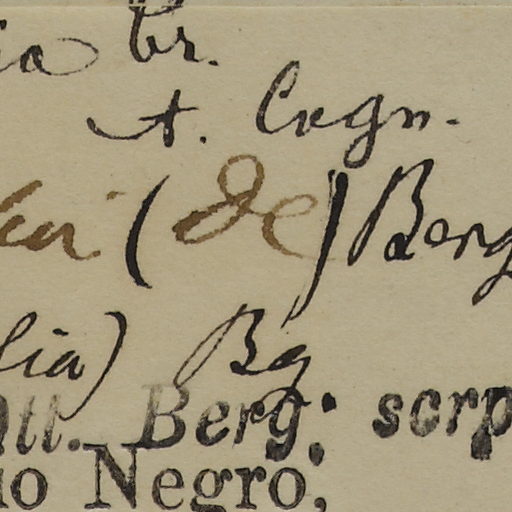 ia Br.
A. Cogn.
(De) Berg
lia) Bg
tt. Berg; scrp
io Negro,